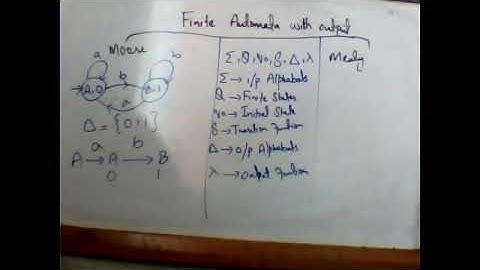 Finite Automata with output
Moore
a
b
b
A,0
B,1
a
Δ = {0,1}
a b
A → A → B
0 1
Σ, Q, q0, δ, Δ, λ
Σ → i/p Alphabets
Q → Finite States
q0 → Initial State
δ → Transition Function
Δ → o/p Alphabets
λ → Output Function
Mealy